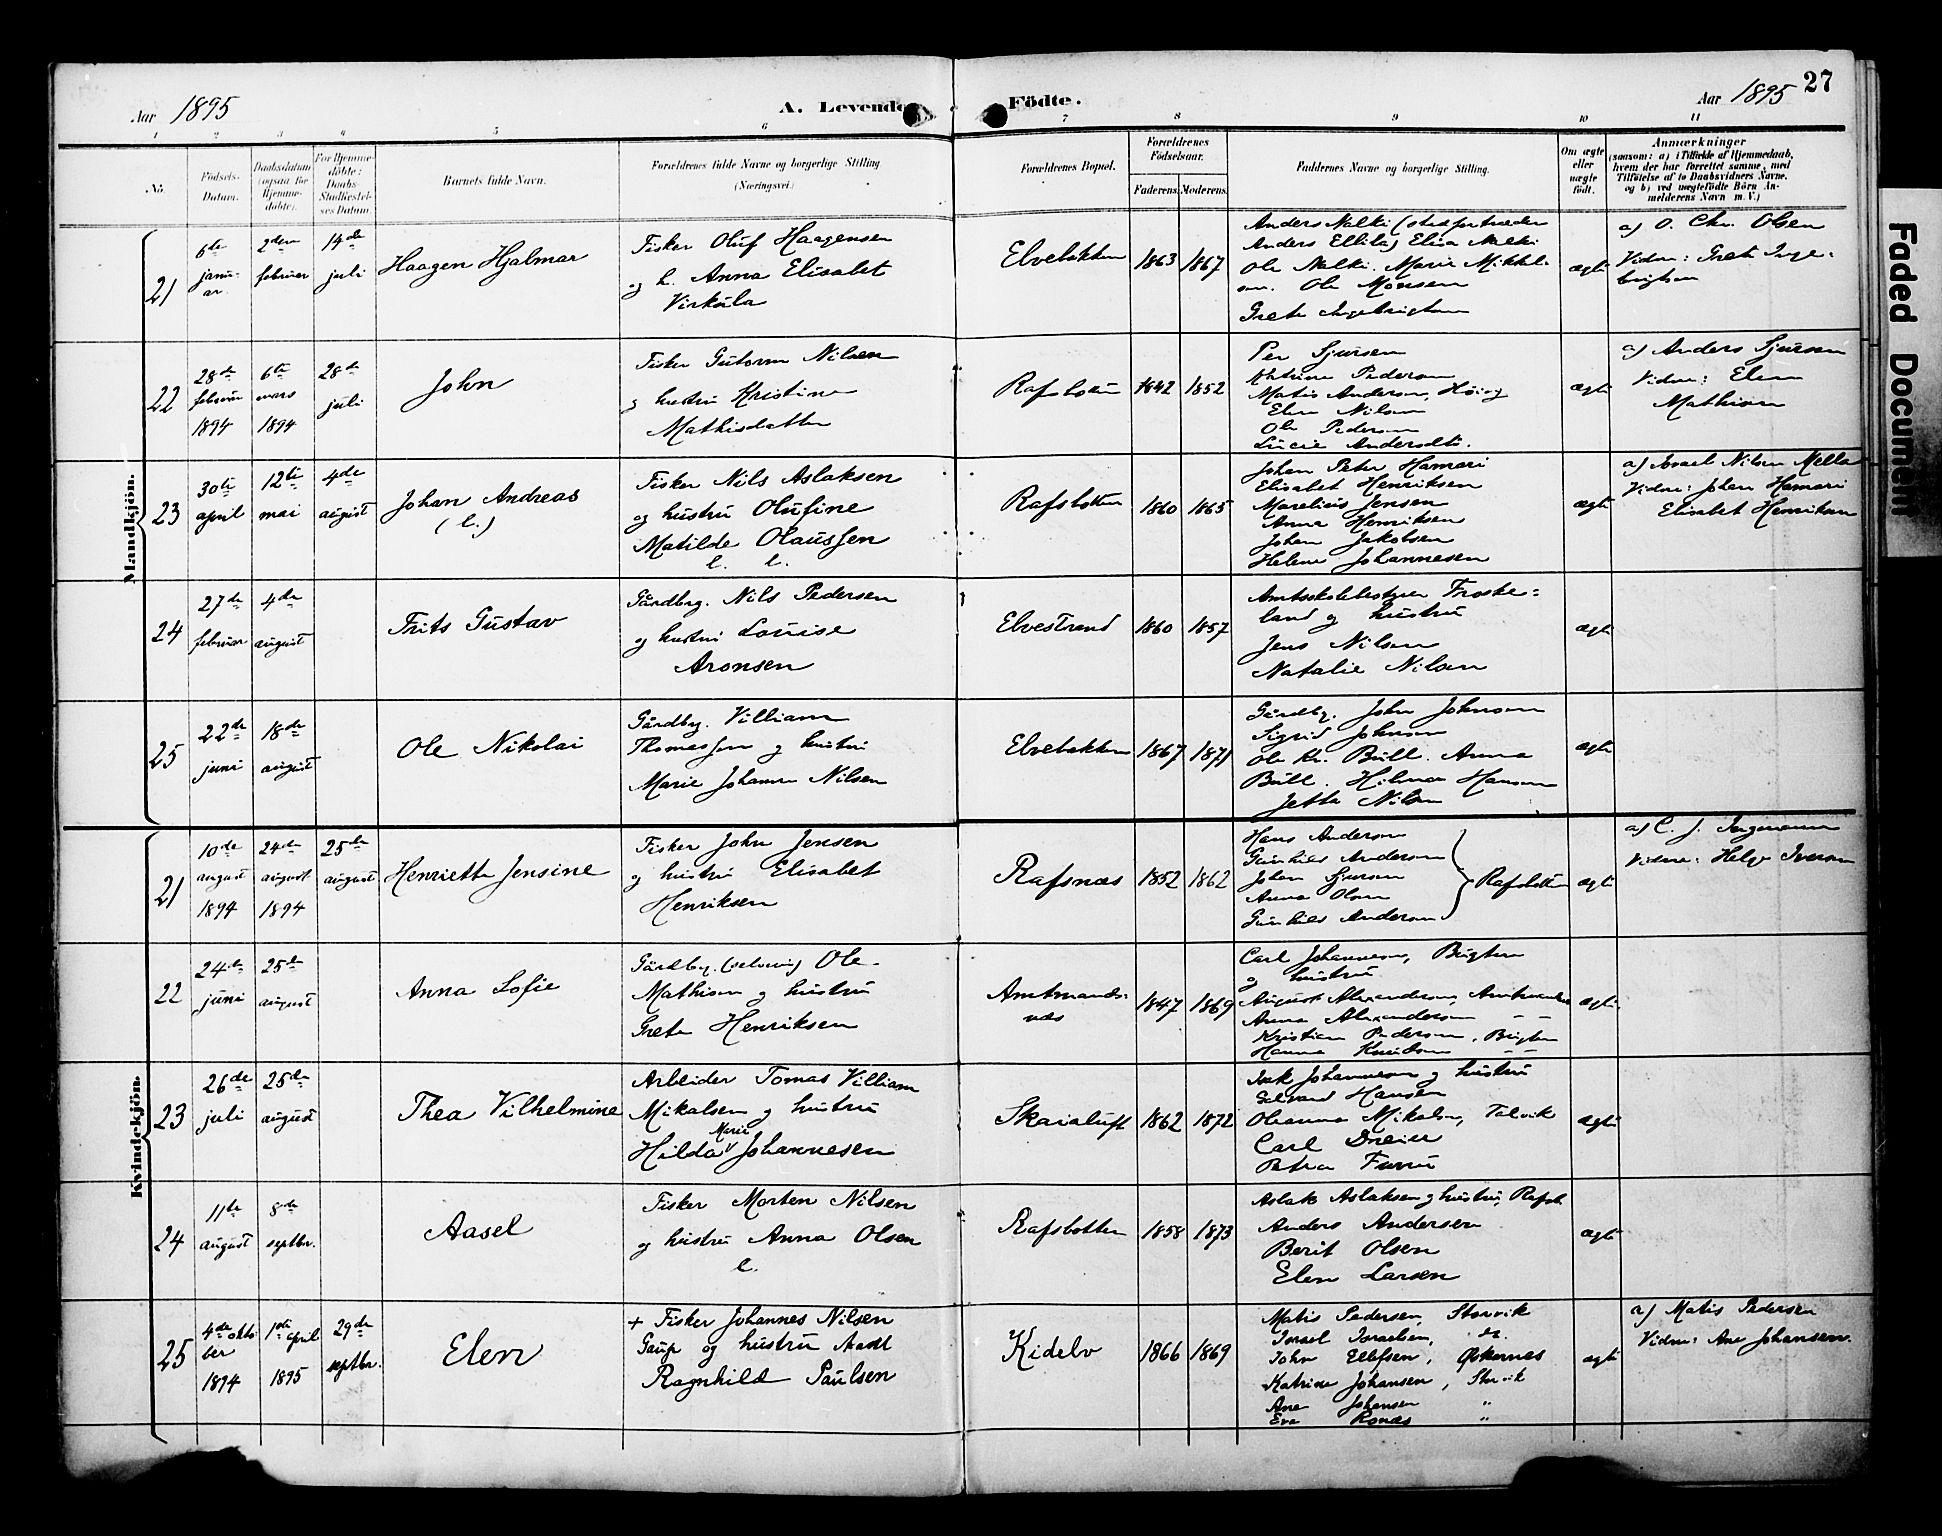 27
Aar 1895
A. Levende Födte.
Aar 1895
1 2 3 4 5 6 7 8 9 10 11
No.
Födsels-
Datum.
Daabsdatum
(ogsaa for
Hjemme-
döbte).
For Hjemme-
döbte:
Daabs-
Stadfæstel-
ses Datum.
Barnets fulde Navn.
Forældrenes fulde Navne og borgerlige Stilling
(Næringsvei.)
Forældrenes Bopæl.
Forældrenes
Födselsaar.
Faderens. Moderens.
Faddernes Navne og borgerlige Stilling.
Om ægte
eller
uægte
født.
Anmærkninger
(saasom: a) i Tilfælde af Hjemmedaab,
hvem der har forrettet samme, med
Tilföielse af to Daabsvidners Navne,
og b) ved uægtefödte Börn An-
melderens Navn m. V.)
Mandkjön.
21
6te
janu-
ar.
2den
februar
14de
juli
Haagen Hjalmar
Fisker Oluf Haagensen
og h. Anna Elisabet
Virkula
Elvebakken
1863 1867
Anders Nalki (stedfortræder
Anders Ellila) Elisa Nalki
Ole Nalki. Marie Mikkel-
sen. Ole Monsen
Grete Ingebrigtsen
ægte
a) O. Chr. Olsen
Vidne: Grete Inge-
brigtsen
22
28de
februar
1894
6te
mars
1894
28de
juli
John
Fisker Guttorm Nilsen
og hustru Kristine
Mathisdatter
Rafsbotten
1842 1852
Per Sjursen
Katrine Pedersen
Matis Andersen,
Elen Nilsen
Ole Pedersen
Lucie Andersdtr.
ægte
a) Anders Sjursen
Vidne: Elen
Mathisen
23
30te
april
12te
mai
4de
august
Johan Andreas
(l.)
Fisker Nils Aslaksen
og hustru Olufine
Matilde Olaussen
l. l.
Rafsbotten
1860 1865
Johan Peter Hamari
Elisabet Henriksen
Marelius Jensen
Anna Henriksen
Johan Jakobsen
Helene Johannesen
ægte
a) Israel Nilsen Mella
Vidne: Johan Hamari
Elisabet Henriksen
24
27de
februar
4de
august
Frits Gustav
Gårdbrg. Nils Pedersen
og hustru Louise
Aronsen
Elvestrand
1860 1857
Amtsskolebestyrer Froske-
land og hustru
Jens Nilsen
Natalie Nilsen
ægte
25
22de
juni
18de
august
Ole Nikolai
Gårdbrg. Villiam
Thomassen og hustru
Marie Johanne Nilsen
Elvebakken
1867 1871
Gårdbrg. John Johnsen
Sigrid Johnsen
Ole Kr. Bull. Anna
Bull. Hilma Hansen
Jette Nilsen
ægte
Kvindekjön.
21
10de
august
1894
24de
august
1894
25de
august
Henriette Jensine
Fisker John Jensen
og hustru Elisabet
Henriksen
Rafsnæs
1852 1862
Hans Andersen
Gunhild Andersen
Johan Sjursen
Anna Olsen
Gunhild Andersen
Rafsbotten
ægte
a) C. J. Ingemann
Vidne: Helge Iversen
22
24de
juni
25de
august
Anna Sofie
Gårdbrg. (selveier) Ole
Mathisen og hustru
Grete Henriksen
Amtmands-
næs
1847 1869
Carl Johannesen, Bugten
og hustru
August Alexandersen, Amtmandsn
Anna Alexandersen - -
Kristian Pedersen, Bugten
Hanna Knudsen - -
ægte
23
26de
juli
25de
august
Thea Vilhelmine
Arbeider Tomas Villiam
Mikalsen og hustru
Marie
Hilda Johannesen
Skaialuft
1862 1872
Isak Johannesen og hustru
Hansen
Oleanna Mikalsen, Talvik
Carl Dreier
Petra Furru
ægte
24
11te
august
8de
septbr.
Aasel
Fisker Morten Nilsen
og hustru Anna Olsen
l.
Rafsbotten
1858 1873
Aslak Aslaksen og hustru, Rafsb.
Anders Andersen
Berit Olsen
Elen Larsen
ægte
25
4de okto
ber
1894
1ste april
1895
29de
septbr.
Elen
+ Fisker Johannes Nilsen
Gaup og hustru
Ragnhild Paulsen
Kidebo
1866 1869
Matis Pedersen, Storvik
Israel Israelsen, do.
John Ellefsen, Øskernes
Katrine Johansen, Storvik
Ane Johansen "
Eva Ronæs "
ægte
a) Matis Pedersen
Vidne: Ane Johansen.
Faded Document